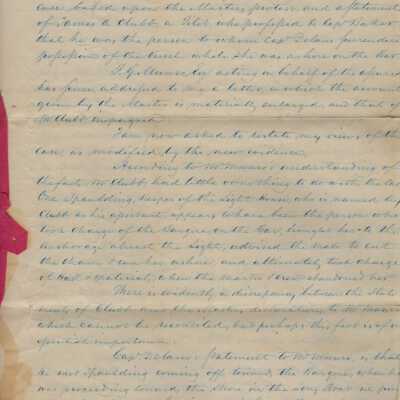 case based upon the Masters protest and statement
of James A Clubb, a Pilot who professed to Capt Barker
that he was the person to whom Capt Delano surrendered
possession of the vessel while she was ashore on the Bar
acting on behalf of the
has since addressed to me a letter, in which the account
given by the Master is materially enlarged, and that of
Mr Clubb impugned.
I am now asked to restate my views of the
case, as modified by the new evidence.
According to Mr Munro's understanding of
the facts, Mr Clubb had little or nothing to do with the
One Spaulding, keeper of the Light House, who is named by
Clubb as his assistant, appears to have been the person who
took charge of the Barque on the Bar, brought her to the
anchorage abreast the Light, advised the Mate to cut
the chain & run her ashore, and, ultimately, took charge
of boat & material, when the Master & crew abandoned her.
There is evidently a discrepancy between the State
ments of Clubb and the Master's declarations to Mr Munro
which cannot be reconciled, but perhaps this fact is of no
especial importance.
Capt Delano's statement to Mr Munro, is that
he met Spaulding coming off toward the Barque, when he
was proceeding toward the Shore in the long Boat